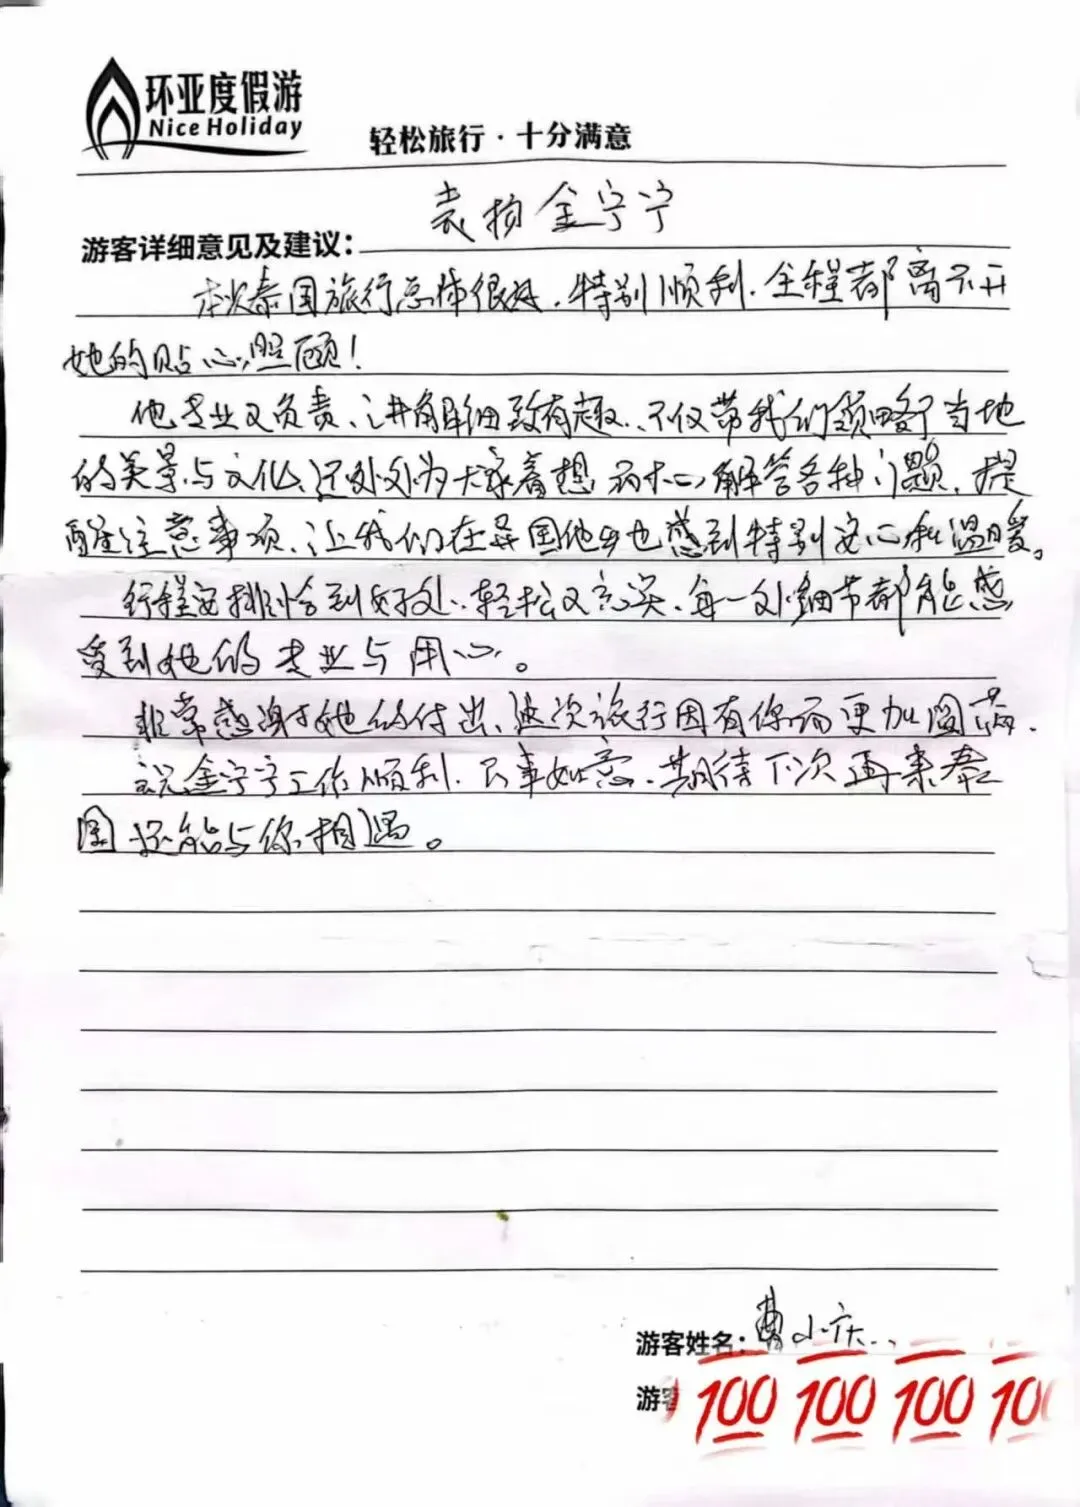 环亚度假游
Nice Holiday
轻松旅行·十分满意
表扬金宁宁
游客详细意见及建议:
本次泰国旅行总体很好，特别顺利，全程都离不开
她的贴心照顾！
他专业又负责、讲解细致有趣、不仅带我们领略了当地
的美景与文化、还处处为大家着想 解答各种问题，提
醒注意事项、让我们在异国他乡也感到特别安心和温暖。
行程安排恰到好处、轻松又充实、每一处细节都能感
受到她的专业与用心。
非常感谢她的付出、这次旅行因有你而更加圆满.
祝金宁宁工作顺利，万事如意，期待下次再来泰
国还能与你相遇。
游客姓名: 曹小庆
游客
100 100 100 100